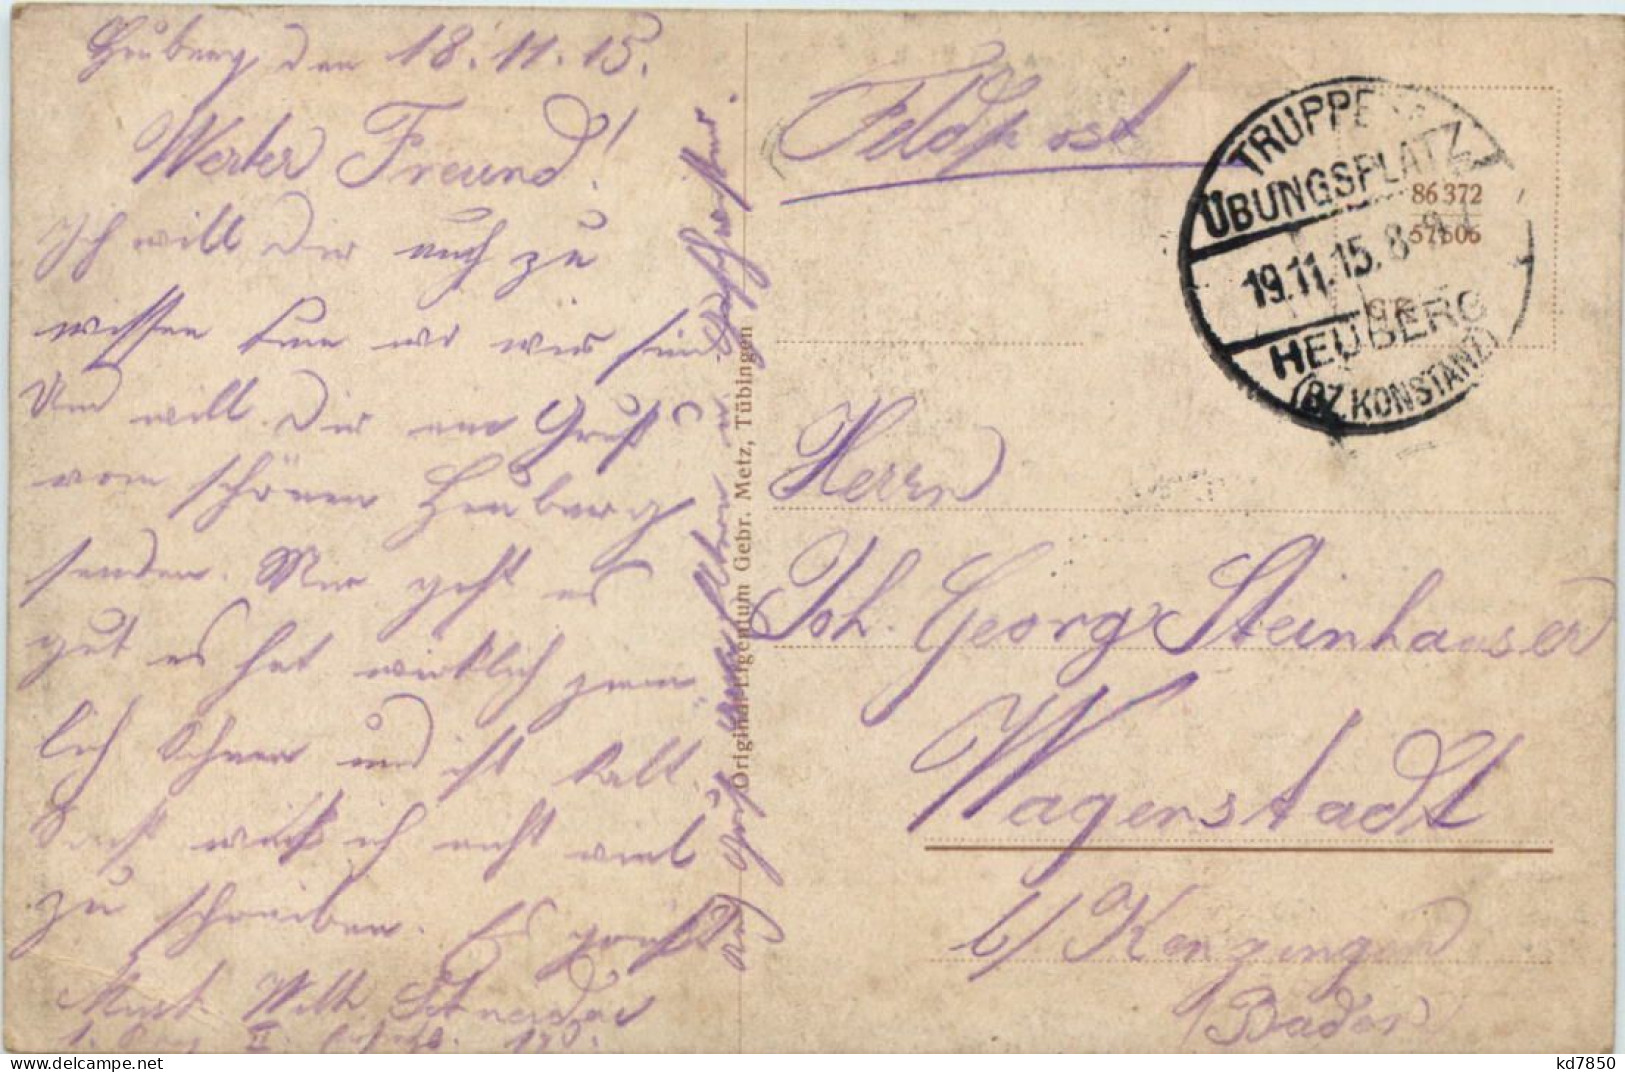 Heuberg den 18.11.15.
Werter Freund!
Ich will Dir auch zu
wissen tun wo wir sind
Und will Dir ein Gruß
vom schönen Heuberg
senden. Mir geht es
gut es hat wirklich ziem-
lich Schnee und ist kalt.
Sonst weiß ich nicht viel
zu schreiben. Es grüßt
Musk. Wilh. Schneider
1. II. 110.
Original-Eigentum Gebr. Metz, Tübingen
Feldpost
TRUPPEN
ÜBUNGSPLATZ
19.11.15. 8-9
HEUBERG
(BZ. KONSTANZ)
86372
57606
Herrn
Joh. Georg Steinhauser
Wagenstadt
b/ Kenzingen
Baden
kd7850